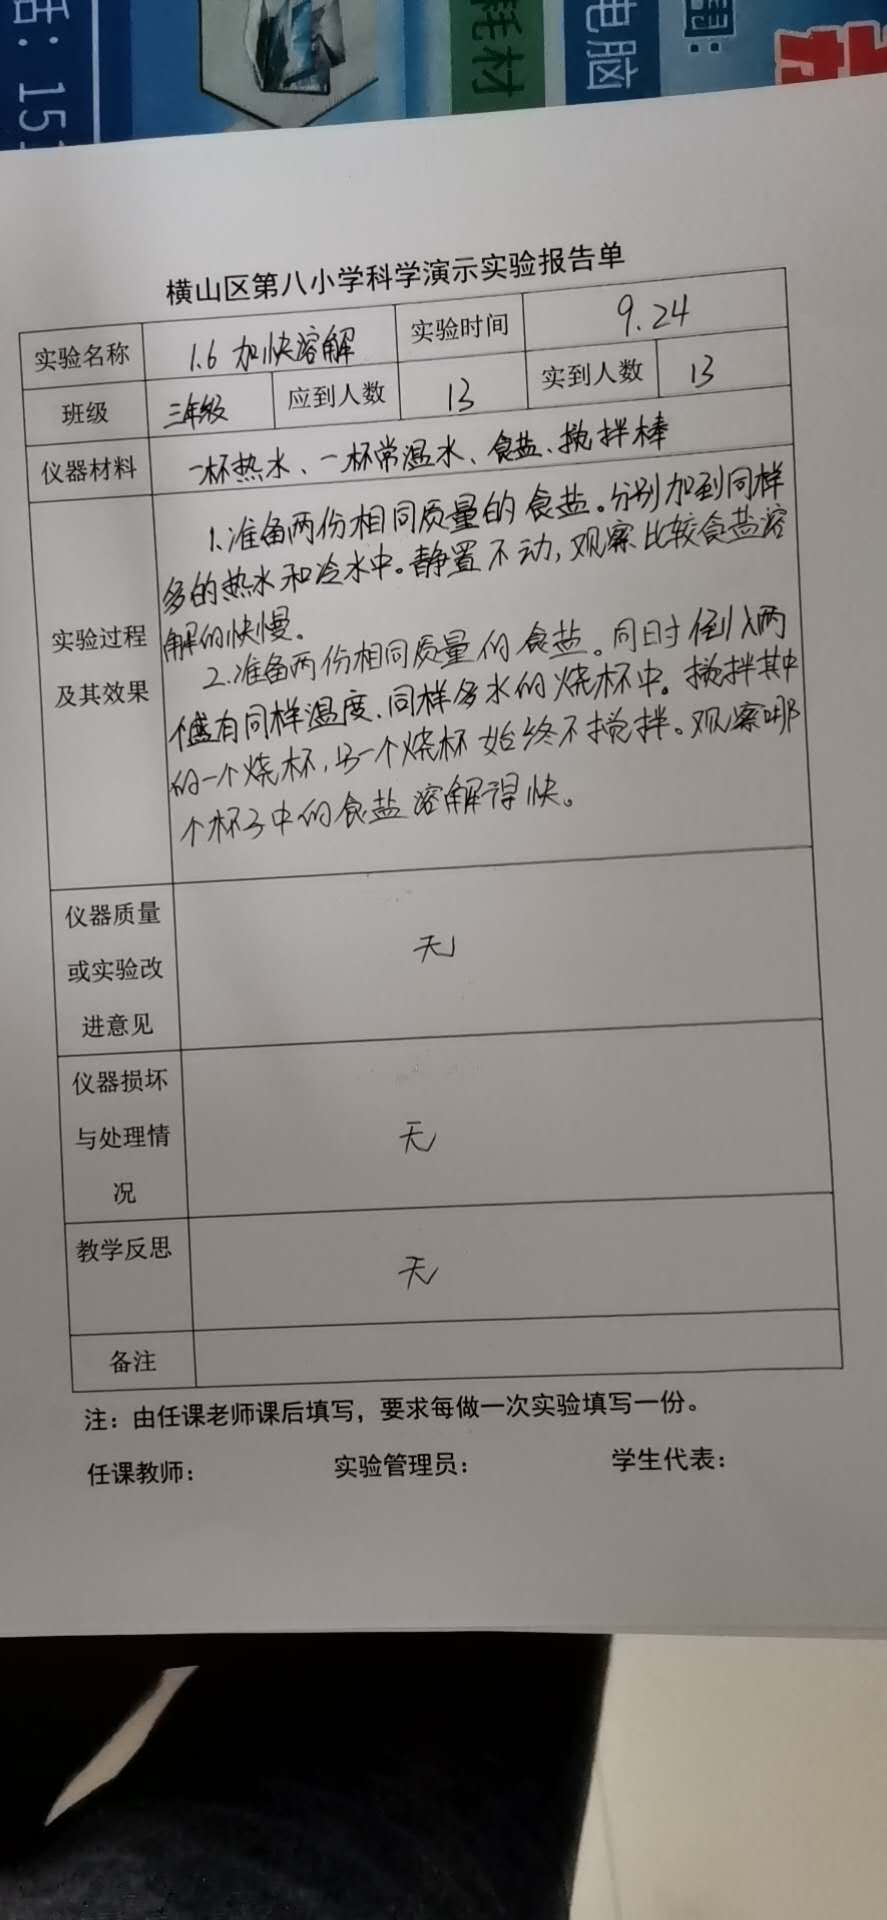 话：15
耗材
电脑
横山区第八小学科学演示实验报告单
实验名称 1.6 加快溶解 实验时间 9.24
班级 三年级 应到人数 13 实到人数 13
仪器材料 一杯热水、一杯常温水、食盐、搅拌棒
实验过程
及其效果
1.准备两份相同质量的食盐。分别加到同样
多的热水和冷水中。静置不动，观察比较食盐溶
解的快慢。
2.准备两份相同质量的食盐。同时倒入两
个盛有同样温度、同样多水的烧杯中。搅拌其中
的一个烧杯，另一个烧杯始终不搅拌。观察哪
个杯子中的食盐溶解得快。
仪器质量
或实验改
进意见
无
仪器损坏
与处理情
况
无
教学反思
无
备注
注：由任课老师课后填写，要求每做一次实验填写一份。
任课教师： 实验管理员： 学生代表：